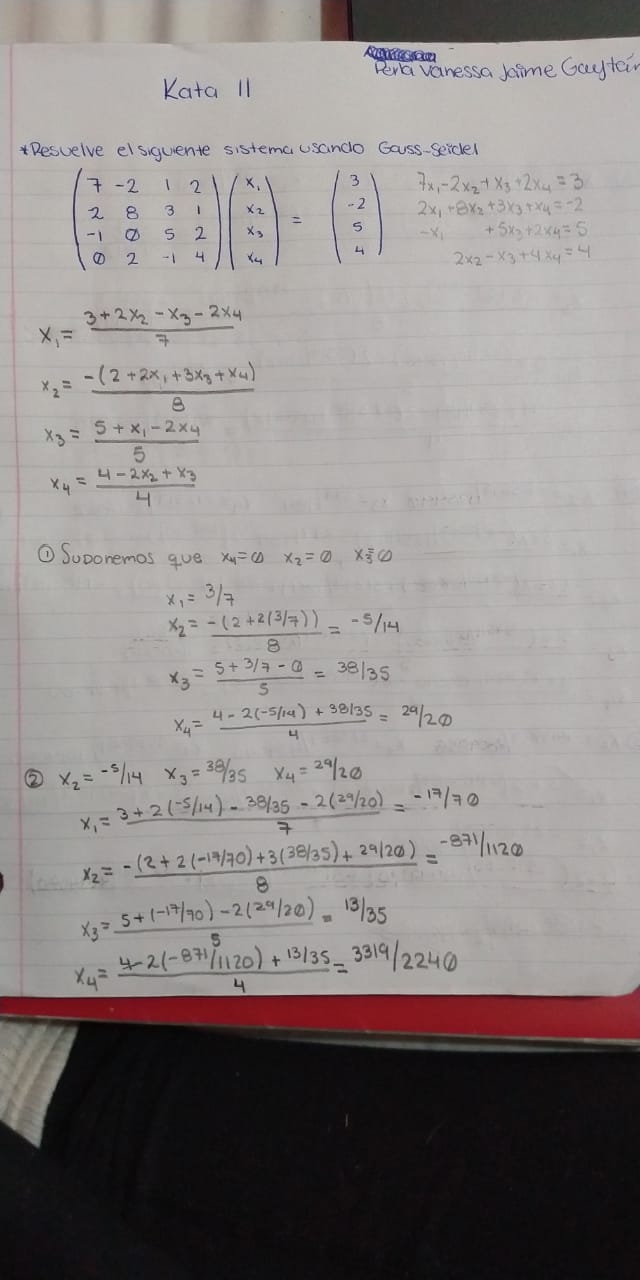 Perla Vanessa Jaime Gaytán
Kata 11
*Resuelve el siguiente sistema usando Gauss-Seidel
7 -2 1 2 x₁ 3 7x₁-2x₂+x₃+2x₄=3
2 8 3 1 x₂ = -2 2x₁+8x₂+3x₃+x₄=-2
-1 0 5 2 x₃ 5 -x₁ +5x₃+2x₄=5
0 2 -1 4 x₄ 4 2x₂-x₃+4x₄=4
x₁= (3+2x₂-x₃-2x₄)/7
x₂= -(2+2x₁+3x₃+x₄)/8
x₃= (5+x₁-2x₄)/5
x₄= (4-2x₂+x₃)/4
① Suponemos que x₄=0 x₂=0 x₃=0
x₁= 3/7
x₂= -(2+2(3/7))/8 = -5/14
x₃= (5+3/7-0)/5 = 38/35
x₄= (4-2(-5/14)+38/35)/4 = 29/20
② x₂=-5/14 x₃=38/35 x₄=29/20
x₁= (3+2(-5/14)-38/35-2(29/20))/7 = -17/70
x₂= -(2+2(-17/70)+3(38/35)+29/20)/8 = -871/1120
x₃= (5+(-17/70)-2(29/20))/5 = 13/35
x₄= (4-2(-871/1120)+13/35)/4 = 3319/2240